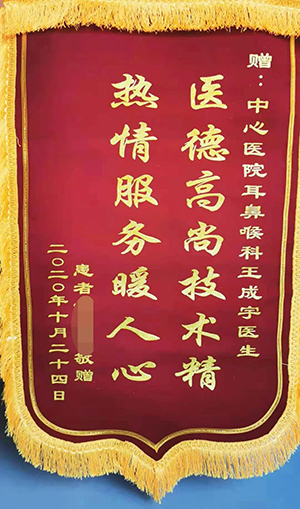 赠：中心医院耳鼻喉科王成宇医生
医德高尚技术精
热情服务暖人心
患者 敬赠
二〇二〇年十月二十四日